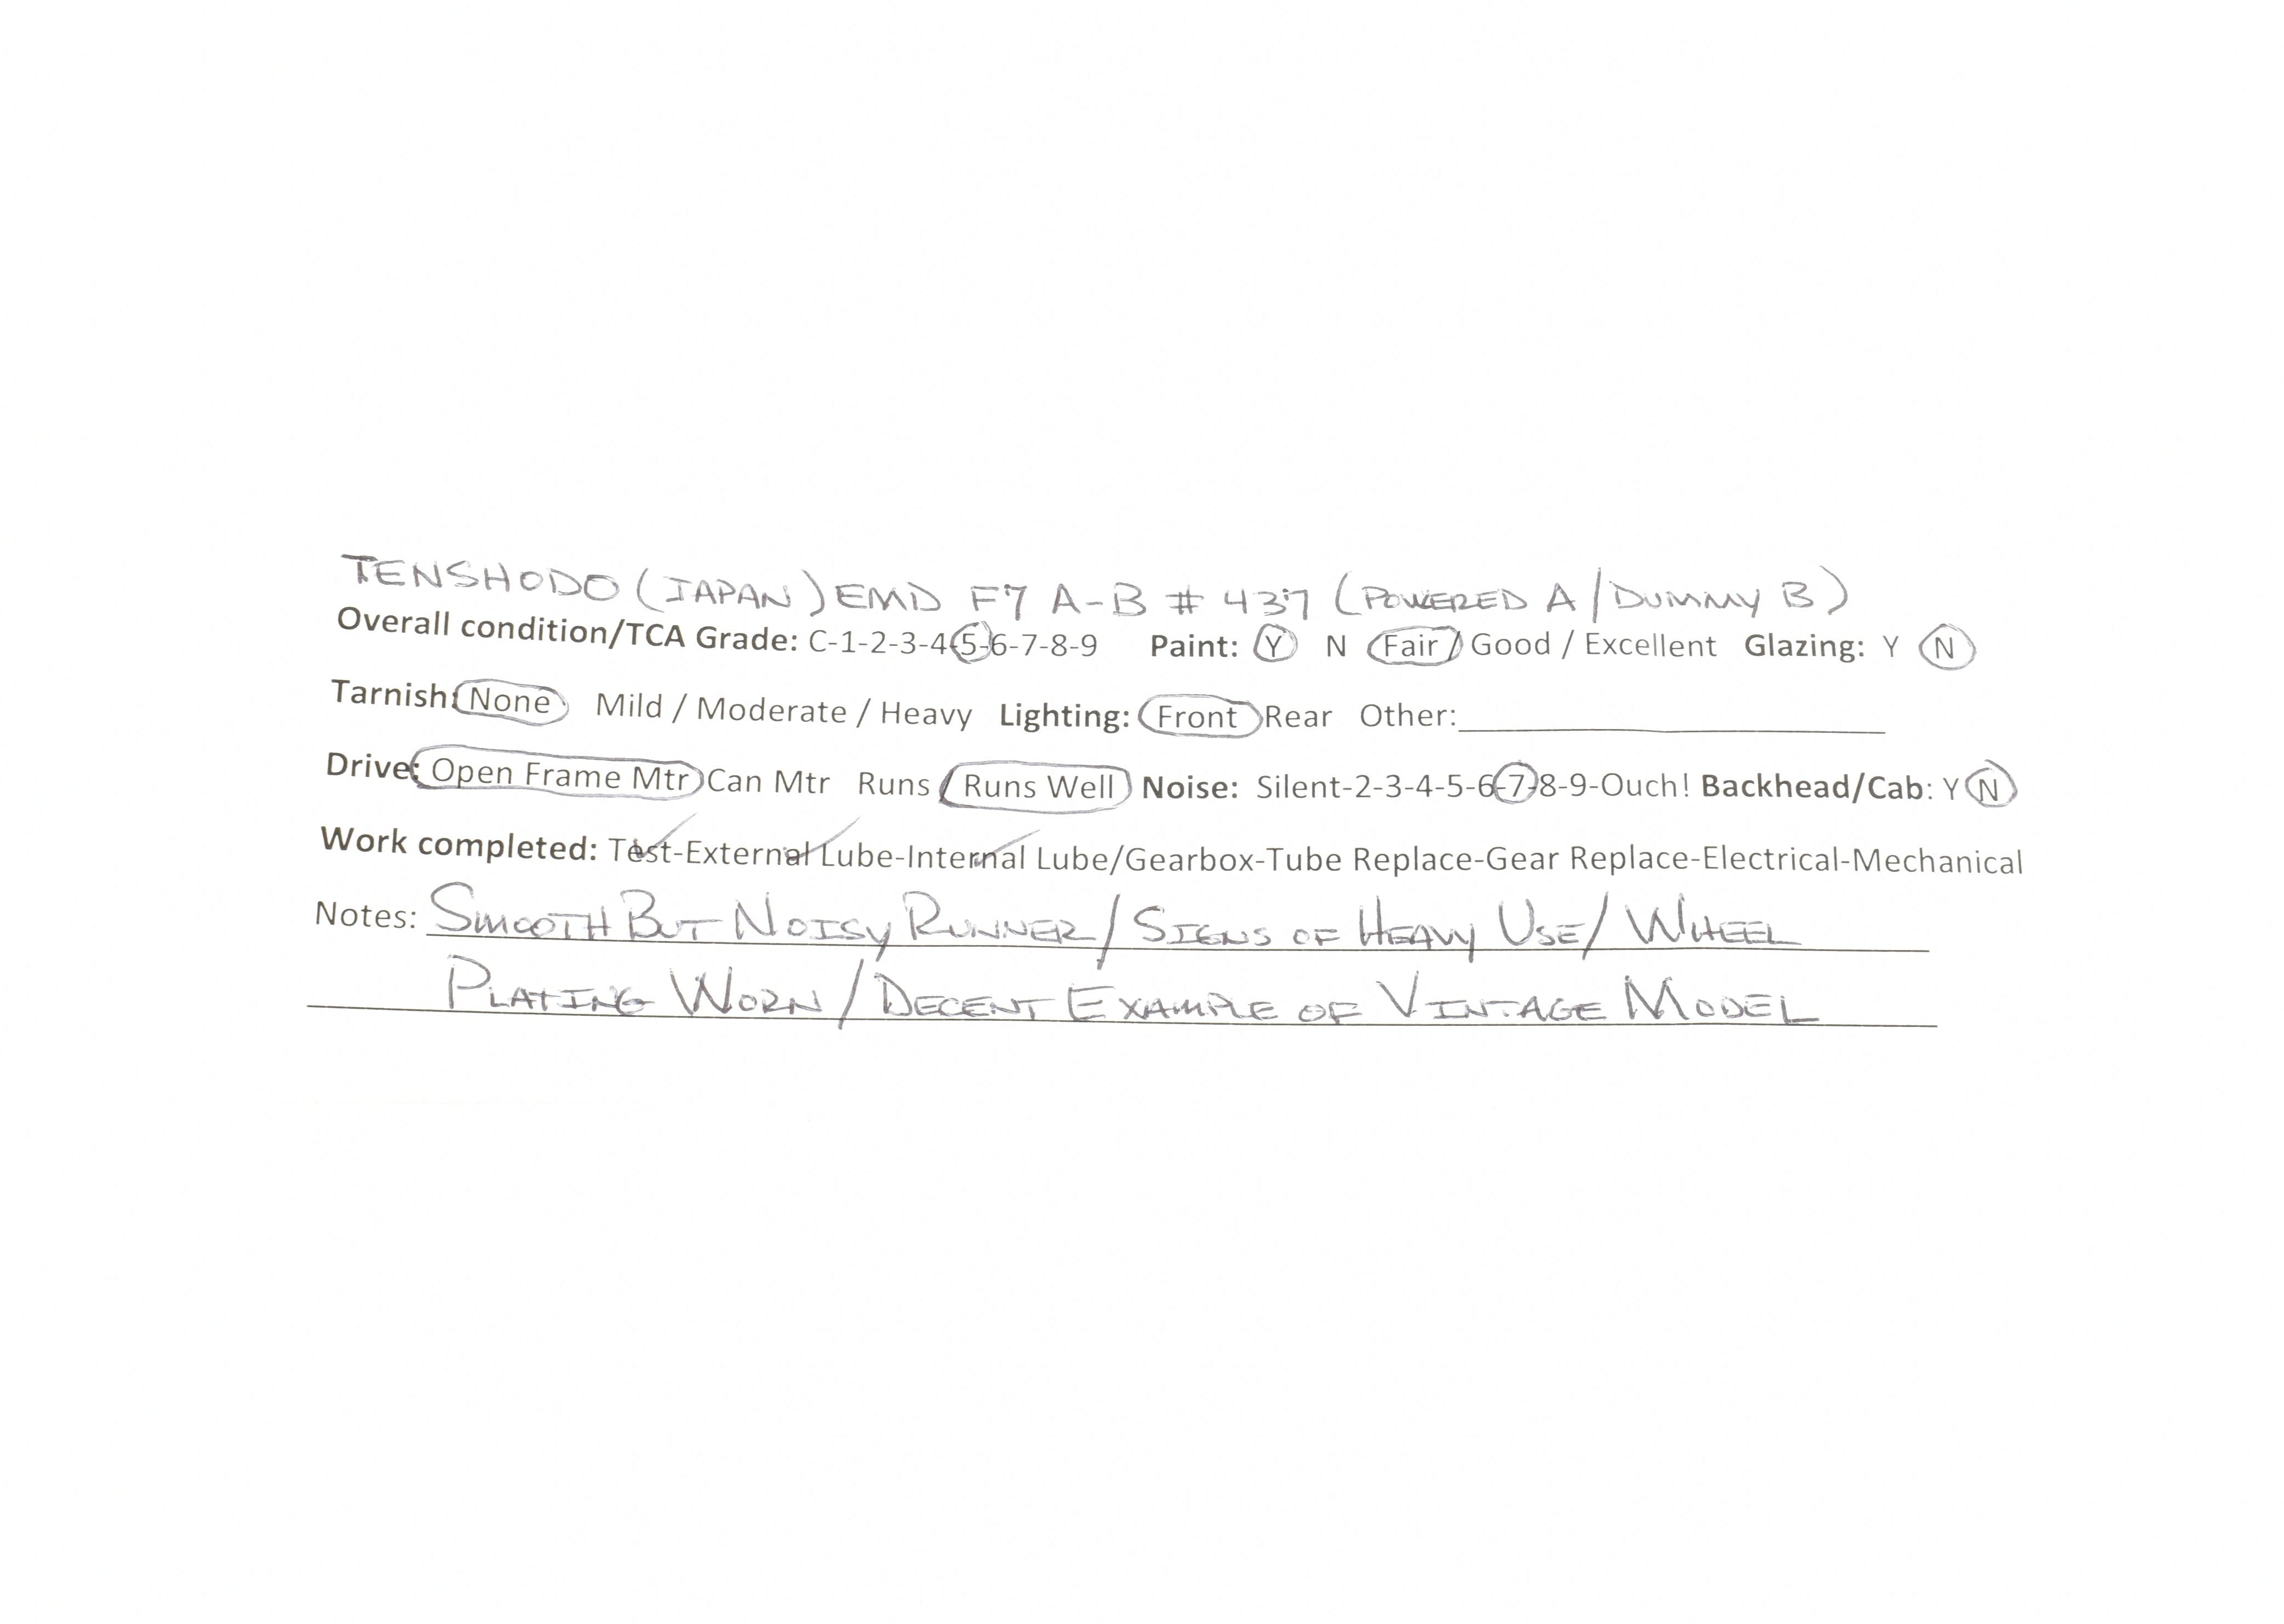 TENSHODO (JAPAN) EMD F7 A-B # 437 (POWERED A/DUMMY B)
Overall condition/TCA Grade: C-1-2-3-4-5-6-7-8-9 Paint: Y N Fair / Good / Excellent Glazing: Y N
Tarnish: None Mild / Moderate / Heavy Lighting: Front Rear Other:
Drive: Open Frame Mtr Can Mtr Runs / Runs Well Noise: Silent-2-3-4-5-6-7-8-9-Ouch! Backhead/Cab: Y N
Work completed: Test-External Lube-Internal Lube/Gearbox-Tube Replace-Gear Replace-Electrical-Mechanical
Notes: SMOOTH BUT NOISY RUNNER/SIGNS OF HEAVY USE/WHEEL
PLATING WORN/DECENT EXAMPLE OF VINTAGE MODEL